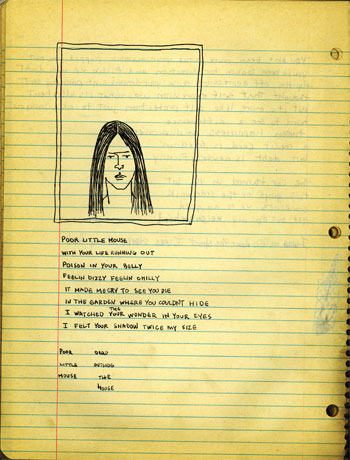 POOR LITTLE MOUSE
WITH YOUR LIFE RUNNING OUT
POISON IN YOUR BELLY
FEELIN DIZZY FEELIN CHILLY
IT MADE ME CRY TO SEE YOU DIE
IN THE GARDEN WHERE YOU COULDN'T HIDE
THE
I WATCHED YOUR WONDER IN YOUR EYES
I FELT YOUR SHADOW TWICE MY SIZE
POOR DEAD
LITTLE OUTSIDE
MOUSE THE
HOUSE